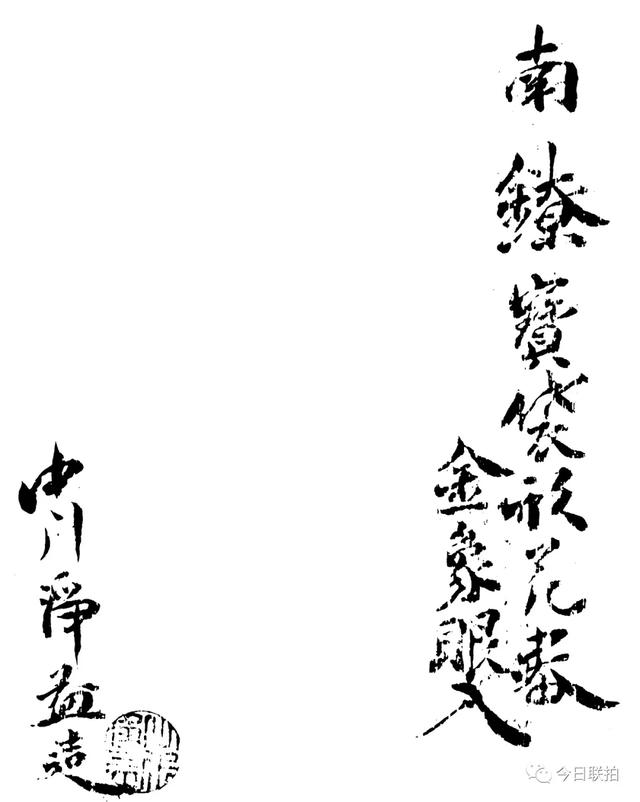 南鐐寶袋形花器
金象眼入
中川淨益造
今日联拍